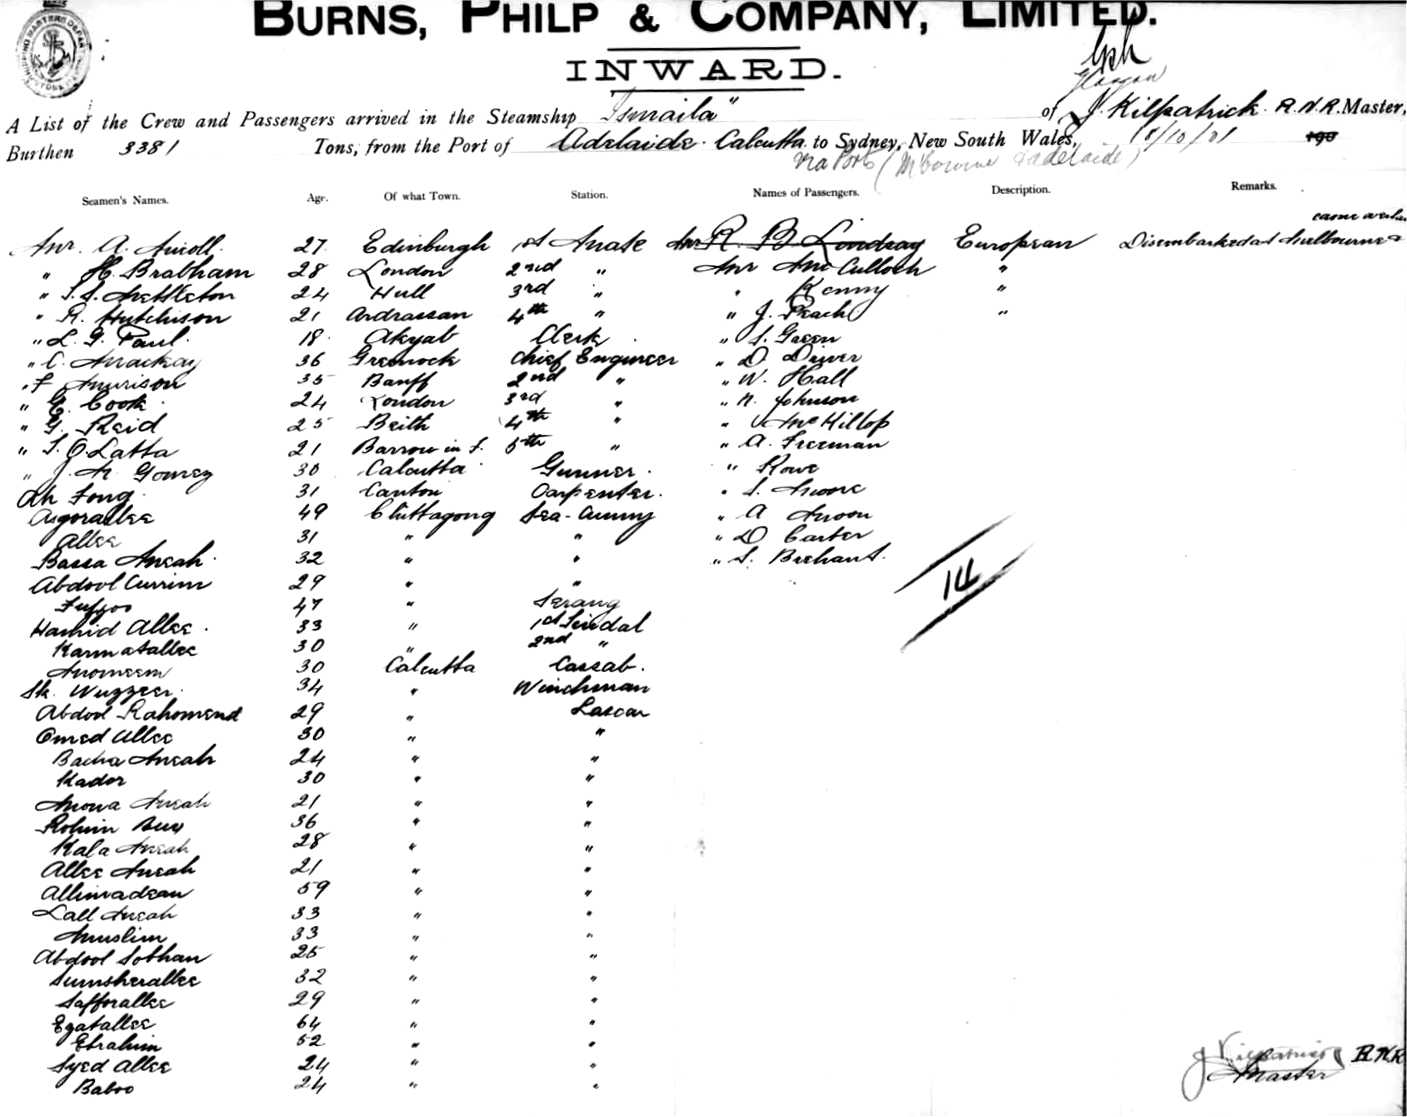 BURNS, PHILP & COMPANY, LIMITED.
INWARD.
A List of the Crew and Passengers arrived in the Steamship "Ismaila" of J. Kilpatrick. R.N.R. Master,
Burthen 3381 Tons, from the Port of Adelaide. Calcutta. to Sydney, New South Wales, 18/10/01 190
via Ports (M'bourne & adelaide)
Seamen's Names. Age. Of what Town. Station. Names of Passengers. Description. Remarks.
A. 27 Edinburgh 1st Mate Mr R. B. Lindsay European Disembarked at Melbourne &
" H. Brabham 28 London 2nd " Mr McCulloch "
" Nettleton 24 Hull 3rd " " Kenny "
" R. Hutchison 21 Ardrassan 4th " " J. Peach "
" L. G. Paul. 18. Akyab Clerk. " S. Green
" C. Mackay 36 Greenock Chief Engineer " D. Driver
" F Murison 35 Banff 2nd " " W. Hall
" E. Cook. 24 London 3rd " " Johnson
" G. Reid 25 Beith 4th " " McHillop
" Latta 21 Barrow in F. 5th " " A. Freeman
" 30 Calcutta Gunner. " Rowe
Ah Fong. 31 Canton Carpenter. " S. Moore
49 Chittagong Sea-Cunny " A Moon
Allee 31 " " " D Carter
Bassa Meah. 32 " " "
Abdool Currim 29 " "
47 " Serang
Hamid Allee. 33 " 1st Tindal
Karmatallee 30 " 2nd "
Momeem 30 Calcutta Cassab.
Sk. Wuzzeer. 34 " Winchman
Abdool Rahomend 29 " Lascar
Omed Allee 30 " "
Bacha Meah 24 " "
Kador 30 " "
Mowa Meah 21 " "
Rohim Bux 36 " "
Kala Meah 28 " "
Allee Meah 21 " "
Allimadean 59 " "
Lall Meah 33 " "
Muslim 33 " "
Abdool Sobhan 25 " "
Sumsherallee 32 " "
Safforallee 29 " "
Egatallee 64 " "
Ebrahim 52 " "
Syed Allee 24 " "
Baboo 24 " "
14
J Kilpatrick R.N.R
Master